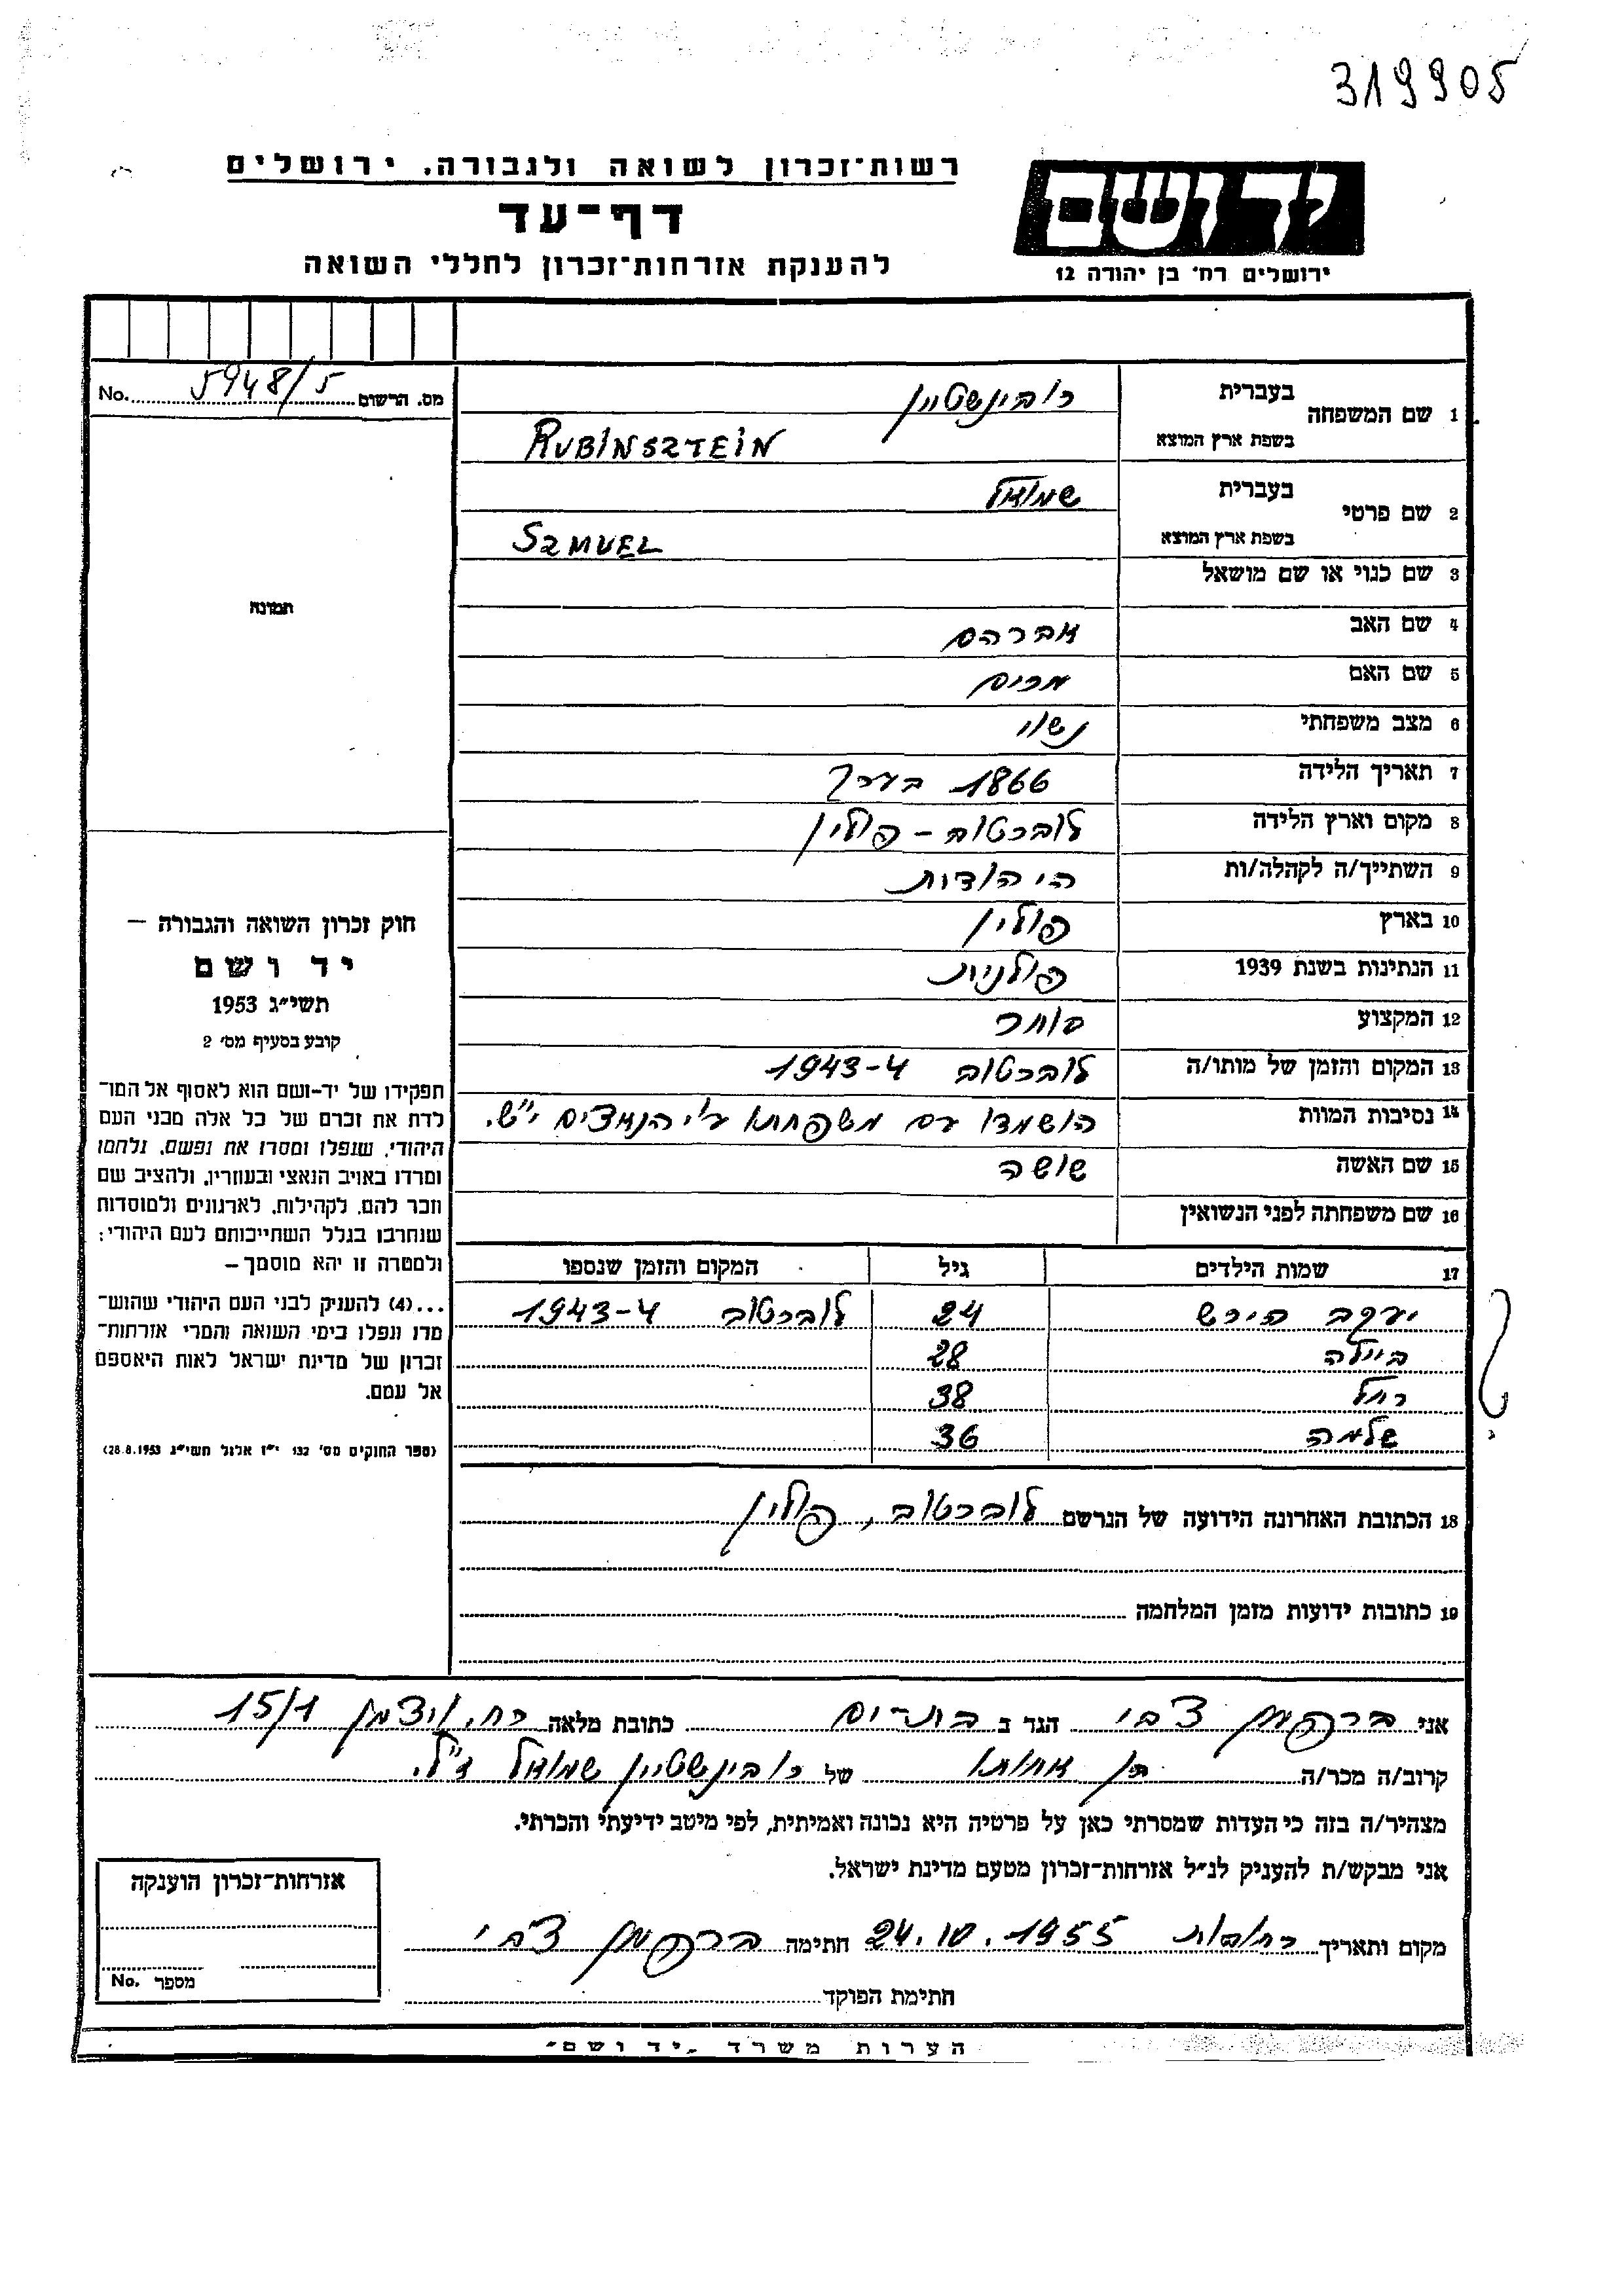 319905
רשות־זכרון לשואה ולגבורה, ירושלים
יד ושם
דף־עד
ירושלים רח׳ בן יהודה 12
להענקת אזרחות־זכרון לחללי השואה
מס. הרשום 5948/5 No.
1 שם המשפחה
בעברית רובינשטיין
בשפת ארץ המוצא RUBINSZTEIN
2 שם פרטי
בעברית שמואל
בשפת ארץ המוצא SZMUEL
3 שם כנוי או שם מושאל
4 שם האב אברהם
5 שם האם מרים
6 מצב משפחתי נשוי
7 תאריך הלידה 1866 בערך
8 מקום וארץ הלידה לוברטוב – פולין
9 השתייך/ה לקהלה/ות היהודית
10 בארץ פולין
11 הנתינות בשנת 1939 פולנית
12 המקצוע סוחר
13 המקום והזמן של מותו/ה לוברטוב 1943-4
14 נסיבות המוות הושמדו עם משפחתו ע״י הנאצים י״ש.
15 שם האשה שושה
16 שם משפחתה לפני הנשואין
17 שמות הילדים גיל המקום והזמן שנספו
יעקב הירש 24 לוברטוב 1943-4
ביילה 28
רחל 38
שלמה 36
18 הכתובת האחרונה הידועה של הנרשם לוברטוב, פולין
19 כתובות ידועות מזמן המלחמה
תמונה
חוק זכרון השואה והגבורה –
יד ושם
תשי״ג 1953
קובע בסעיף מס׳ 2
תפקידו של יד-ושם הוא לאסוף אל המו־
לדת את זכרם של כל אלה מבני העם
היהודי, שנפלו ומסרו את נפשם, נלחמו
ומרדו באויב הנאצי ובעוזריו, ולהציב שם
וזכר להם, לקהילות, לארגונים ולמוסדות
שנחרבו בגלל השתייכותם לעם היהודי;
ולמטרה זו יהא מוסמך –
...(4) להעניק לבני העם היהודי שהוש־
מדו ונפלו בימי השואה והמרי אזרחות־
זכרון של מדינת ישראל לאות היאספם
אל עמם.
(ספר החוקים מס׳ 132 י״ז אלול תשי״ג 28.8.1953)
אני ברקמן צבי הגר ב בת-ים כתובת מלאה רח׳ ויצמן 15/1
קרוב/ה מכר/ה בן אחותו של רובינשטיין שמואל ז״ל.
מצהיר/ה בזה כי העדות שמסרתי כאן על פרטיה היא נכונה ואמיתית, לפי מיטב ידיעתי והכרתי.
אני מבקש/ת להעניק לנ״ל אזרחות־זכרון מטעם מדינת ישראל.
מקום ותאריך רחובות 24.10.1955 חתימה ברקמן צבי
חתימת הפוקד
אזרחות־זכרון הוענקה
מספר No.
הערות משרד „יד ושם״